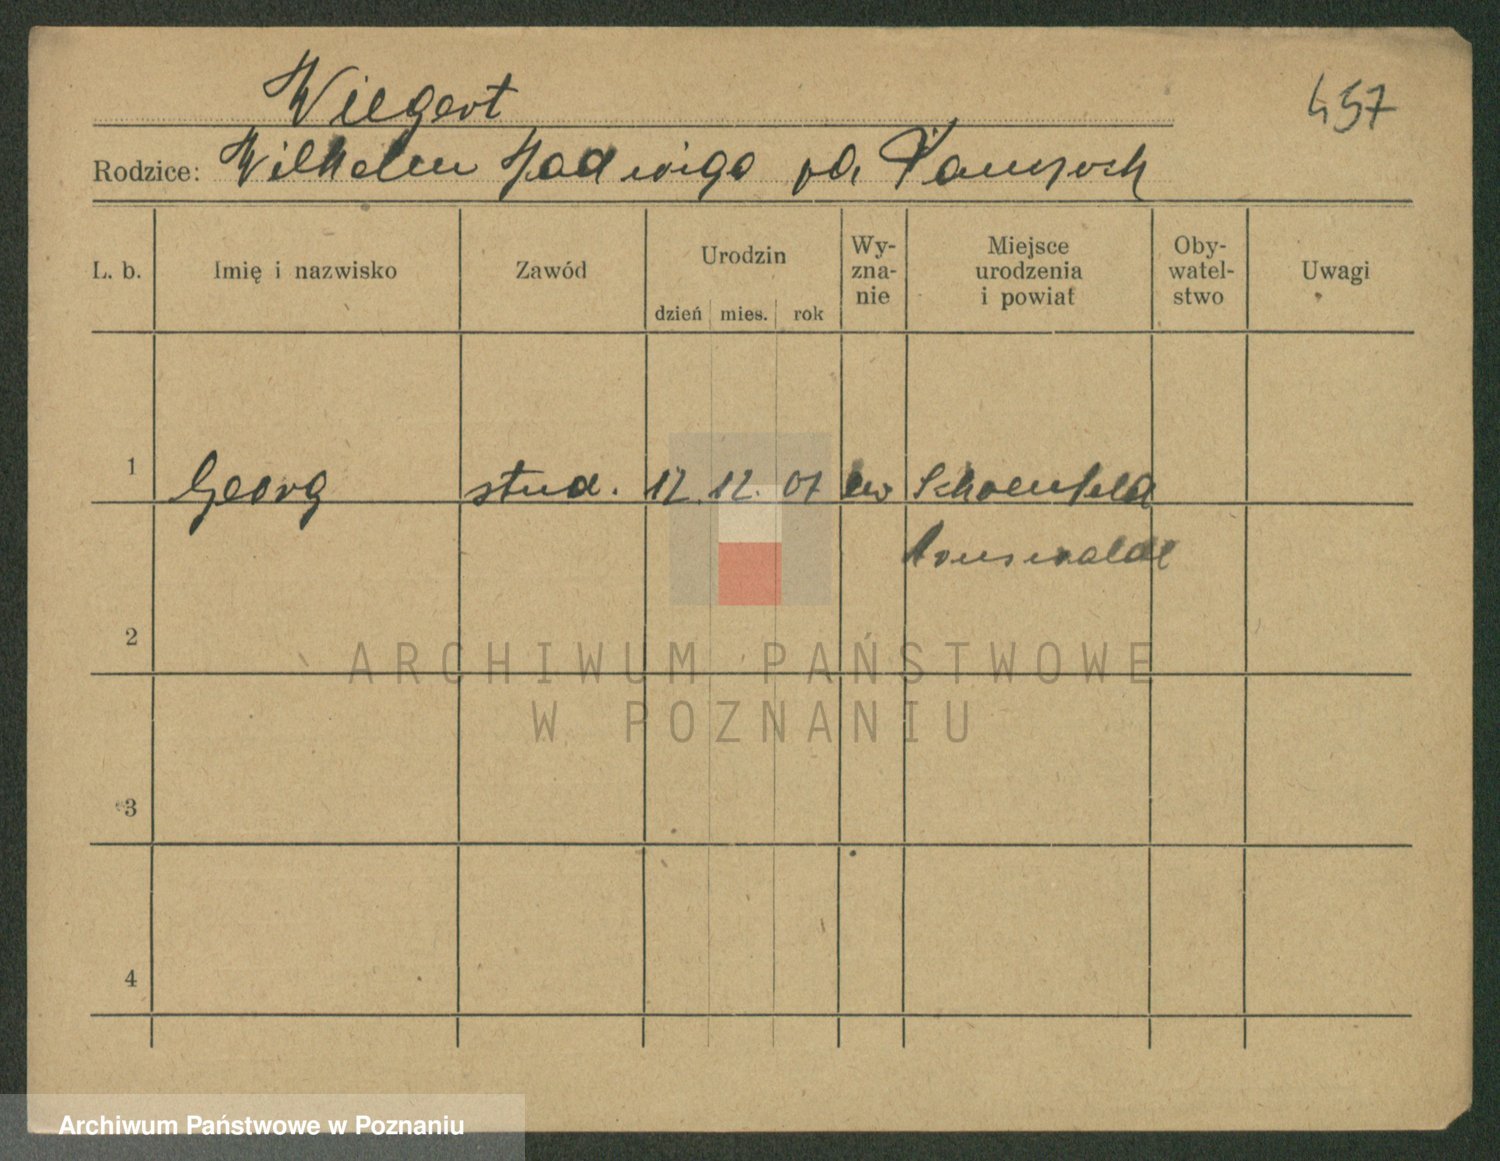 Wiegert
457
Rodzice: Wilhelm Hadwiga
L. b. Imię i nazwisko Zawód Urodzin Wy-zna-nie Miejsce urodzenia i powiat Oby-watel-stwo Uwagi
dzień mies. rok
1 Georg stud. 12. 12. 07 ew Schoenfeld
Arnswalde
2
3
4
ARCHIWUM PAŃSTWOWE
W POZNANIU
Archiwum Państwowe w Poznaniu